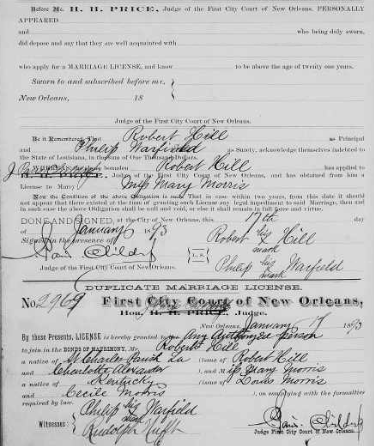 Before Me, H. H. PRICE, Judge of the First City Court of New Orleans, PERSONALLY
APPEARED
and who being duly sworn,
did depose and say that they are well acquainted with
who apply for a MARRIAGE LICENSE, and know to be above the age of twenty one years.
Sworn to and subscribed before me,
New Orleans, 18
Judge of the First City Court of New Orleans.
Be it Remembered, That Robert Hill as Principal
and Philip Warfield as Surety, acknowledge themselves indebted to
the State of Louisiana, in the sum of One Thousand Dollars.
Robert Hill has applied to
H. H. PRICE, Judge of the First City Court of New Orleans, and has obtained from him a
License to Marry Miss Mary Morris
Now the Condition of the above Obligation is such, That in case within two years, from this date it should
not appear that there existed at the time of granting such License any legal impediment to said Marriage, then and
in such case the above Obligation shall be null and void, or else it shall remain in full force and virtue.
DONE AND SIGNED, at the City of New Orleans, this 17th
January 1893
Signed in the presence of Robert his Hill
mark
Judge of the First City Court of New Orleans. Philip his Warfield
mark
DUPLICATE MARRIAGE LICENSE.
No. 2969 First City Court of New Orleans,
Hon. H. H. PRICE, Judge.
New Orleans, January 17 1893
By these Presents, LICENSE is hereby granted to Any Authorized person
to join in the BONDS OF MATRIMONY, Mr. Robert Hill
a native of St. Charles Parish La (son of Robert Hill
and Charlotte Alexander ) and Miss Mary Morris
a native of Kentucky (daughter of Louis Morris
and Cecile Morris ), on complying with the formalities
required by law. Philip his Warfield
mark
Witnesses Rudolph
Judge First City Court of New Orleans.